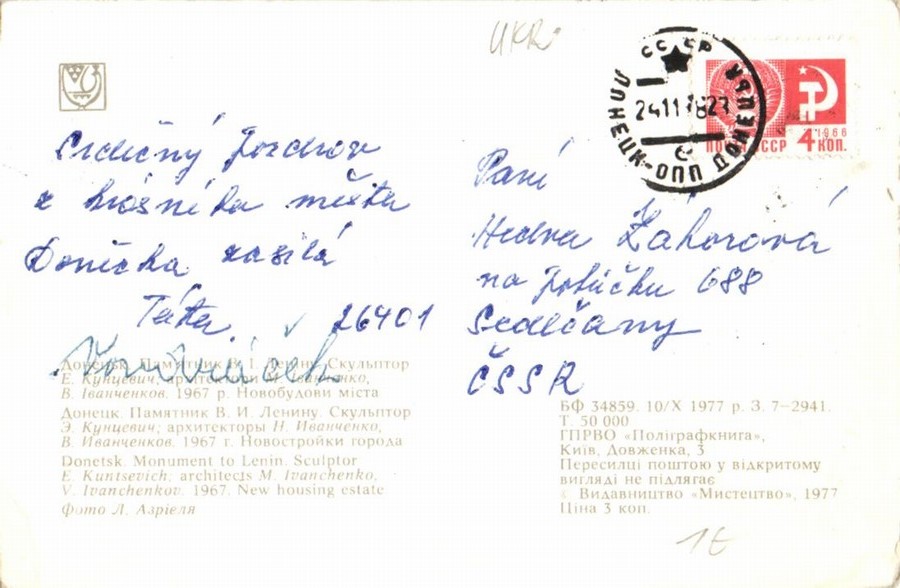 UKR
СССР
24 11 78 23
ДОНЕЦК-ОПП ДОНЕЦКЯ
1966
ПОЧТА СССР 4 КОП.
Srdečný pozdrav
z krásného města
Donécka zasílá
Táta.
26401
Paní
Hedva Záhorová
na potůčku 688
Sedlčany
ČSSR
Донецьк. Пам'ятник В. І. Леніну. Скульптор
Е. Кунцевич; архітектори М. Іванченко,
В. Іванченков. 1967 р. Новобудови міста
Донецк. Памятник В. И. Ленину. Скульптор
Э. Кунцевич; архитекторы Н. Иванченко,
В. Иванченков. 1967 г. Новостройки города
Donetsk. Monument to Lenin. Sculptor
E. Kuntsevich; architects M. Ivanchenko,
V. Ivanchenkov. 1967. New housing estate
Фото Л. Азріеля
БФ 34859. 10/X 1977 р. З. 7—2941.
Т. 50 000
ГПРВО «Поліграфкнига»,
Київ, Довженка, 3
Пересилці поштою у відкритому
вигляді не підлягає
© Видавництво «Мистецтво», 1977
Ціна 3 коп.
1E